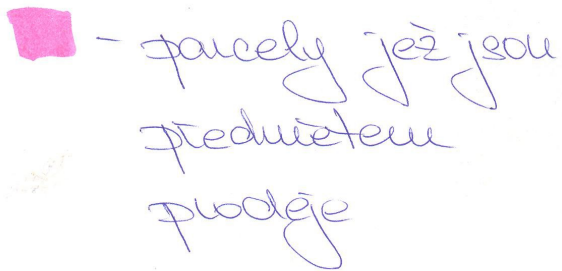 - parcely jež jsou
předmětem
prodeje